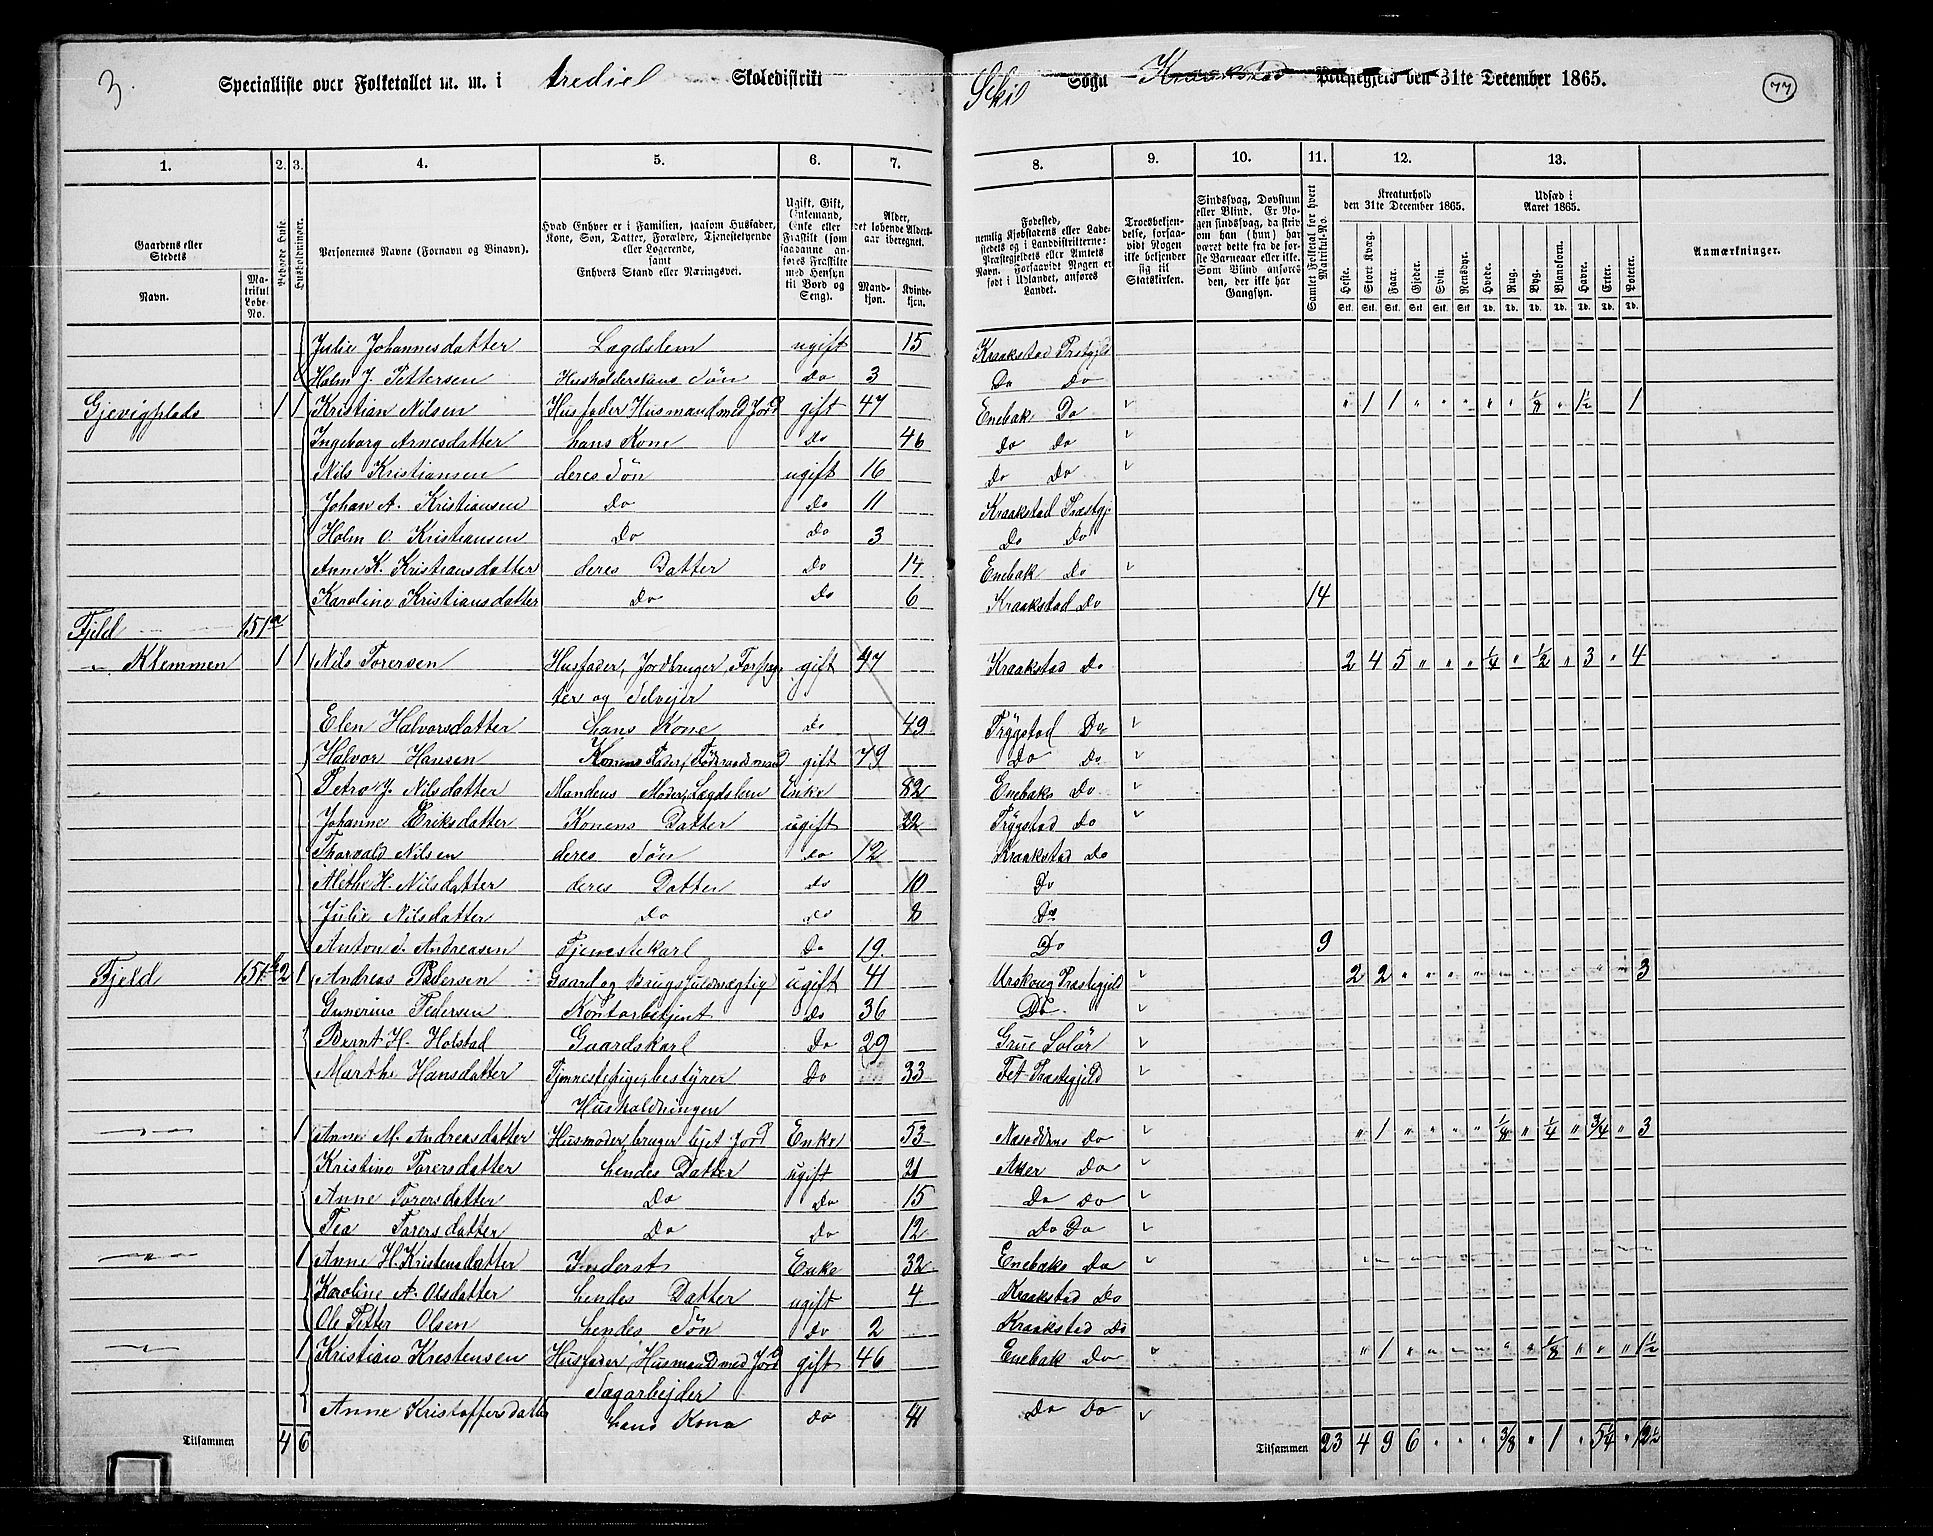 3
Specialliste over Folketallet m. m. i tredie Skoledistrikt Ski Sogn Kraakstad Præstegjeld den 31te December 1865. 77
1. 2. 3. 4. 5. 6. 7. 8. 9. 10. 11. 12. 13.
Gaardens eller Stedets
Navn.
Matrikul Løbe-No.
Beboede Huse.
Husholdninger.
Personernes Navne (Fornavn og Binavn).
Hvad Enhver er i Familien, saasom Husfader, Kone, Søn, Datter, Forældre, Tjenestetyende eller Logerende, samt Enhvers Stand eller Næringsvei.
Ugift, Gift, Enkemand, Enke eller Fraskilt (som saadanne anføres Fraskilte med Hensyn til Bord og Seng).
Alder, det løbende Aldersaar iberegnet.
Mandkjøn.
Kvindekjøn.
Fødested, nemlig Kjøbstadens eller Ladestedets og i Landdistrikterne: Præstegjeldets eller Amtets Navn. Forsaavidt Nogen er født i Udlandet, anføres Landet.
Troesbekjendelse, forsaavidt Nogen ikke bekjender sig til Statskirken.
Sindssvag, Døvstum eller Blind. Er Nogen sindssvag, da skriv om han (hun) har været dette fra de første Barneaar eller ikke. Som Blind anføres den, der ikke har Gangsyn.
Samlet Folketal for hvert Matrikul-No.
Kreaturhold den 31te December 1865.
Heste. Stort Kvæg. Faar. Gjeder. Svin. Rensdyr.
Stk. Stk. Stk. Stk. Stk. Stk.
Udsæd i Aaret 1865.
Hvede. Rug. Byg. Blandkorn. Havre. Erter. Poteter.
Td. Td. Td. Td. Td. Td. Td.
Anmærkninger.
Julie Johannesdatter Lægdslem ugift 15 Kraakstad Præstgjeld
Holm J. Pettersen Husholderskens Søn Do 3 Do Do
Gjevigplads 1 1 Kristian Nilsen Husfader Husmand med Jord gift 47 Enebak Do " 1 1 " " " " " 1/8 " 1 1/2 1
Ingeborg Arnesdatter hans Kone Do 46 Do Do
Nils Kristiansen deres Søn ugift 16 Do Do
Johan A. Kristiansen Do Do 11 Kraakstad Præstgj.
Holm O. Kristiansen Do Do 3 Do Do
Anne K. Kristiansdatter deres Datter Do 14 Enebak Do
Karoline Kristiansdatter Do Do 6 Kraakstad Do 14
Fjeld 151a
" Klemmen 1 1 Nils Torersen Husfader, Jordbruger, Forpagter og Selvejer gift 47 Kraakstad Do 2 4 5 " " " 1/4 " 1/2 " 3 " 4
Elen Halvorsdatter hans Kone Do 49 Trygstad Do
Halvor Hansen Konens Fader, Føderaadsmand gift 79 Do Do
Petro J. Nilsdatter Mandens Moder, Lægdslem Enke 82 Enebak Do
Johanne Eriksdatter Konens Datter ugift 22 Trygstad Do
Thorvald Nilsen deres Søn Do 12 Kraakstad Do
Alethe H. Nilsdatter deres Datter Do 10 Do
Julie Nilsdatter Do Do 8 Do
Anton J. Andreasen Tjenestekarl Do 19 Do 9
Fjeld 151b 2 1 Andreas Pedersen Gaard og Brugsfuldmægtig ugift 41 Urskoug Præstegjeld 2 2 " " " " 3
Gunerius Pedersen Kontorbetjent Do 36 Do
Bernt H. Holstad Gaardskarl Do 29 Grue Solør
Marthe Hansdatter Tjenestepige, bestyrer Husholdningen Do 33 Fet Præstegjeld
" 1 Anne M. Andreasdatter Husmoder, bruger lejet Jord Enke 53 Næsoddens Do " 1 " " " " 1/8 " 1/4 " 3/4 " 3
Kristine Torersdatter hendes Datter ugift 21 Aker Do
Anne Torersdatter Do Do 15 Do Do
Tea Torersdatter Do Do 12 Do Do
" 1 Anne H. Kristensdatter Inderst Enke 32 Enebaks Do
Karoline A. Olsdatter hendes Datter ugift 4 Kraakstad Do
Ole Petter Olsen hendes Søn Do 2 Kraakstad Do
" 1 Kristian Krestensen Husfader, Husmand med Jord Sagarbejder gift 46 Enebak Do " 1 " " " " " " 1/8 " " " 1 1/2
Anne Kristoffersdatter hans Kone Do 41 Do Do
Tilsammen 4 6
Tilsammen 23 4 9 6 " " " 3/8 " 1 " 5 1/4 " 12 1/2